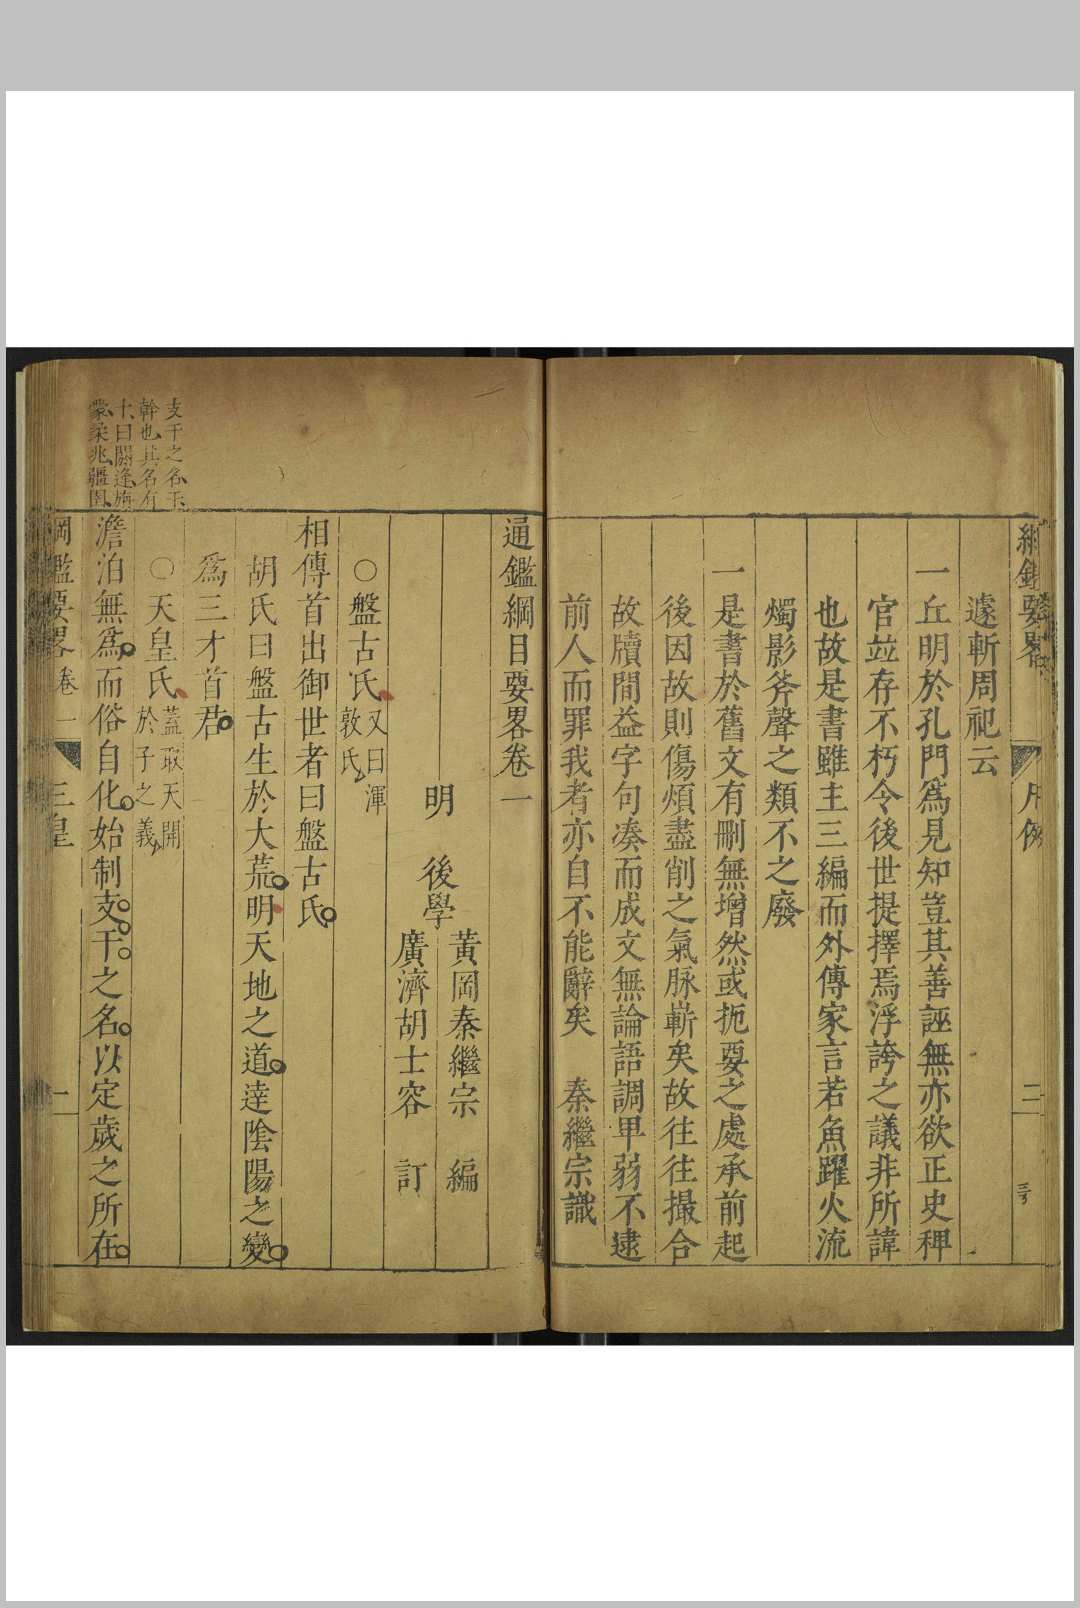 遽斬周祀云
一丘明於孔門爲見知豈其善誣無亦欲正史稗
官竝存不朽今後世提擇焉浮誇之議非所諱
也故是書雖主三編而外傳家言若魚躍火流
燭影斧聲之類不之廢
一是書於舊文有刪無增然或扼要之處承前起
後因故則傷煩盡削之氣脉嶄矣故往往撮合
故牘間益字句凑而成文無論語調卑弱不逮
前人而罪我者亦自不能辭矣 秦繼宗識
通鑑綱目要畧卷一
明 後學 黃岡秦繼宗 編
廣濟胡士容 訂
○盤古氏 又曰渾敦氏
相傳首出御世者曰盤古氏
胡氏曰盤古生於大荒明天地之道達陰陽之變
爲三才首君
○天皇氏 蓋取天開於子之義
澹泊無爲而俗自化始制支干之名以定歲之所在
支干之名干
幹也其名有
十曰閼逢旃
蒙柔兆彊圉
綱鑑要畧 卷一 三皇 一